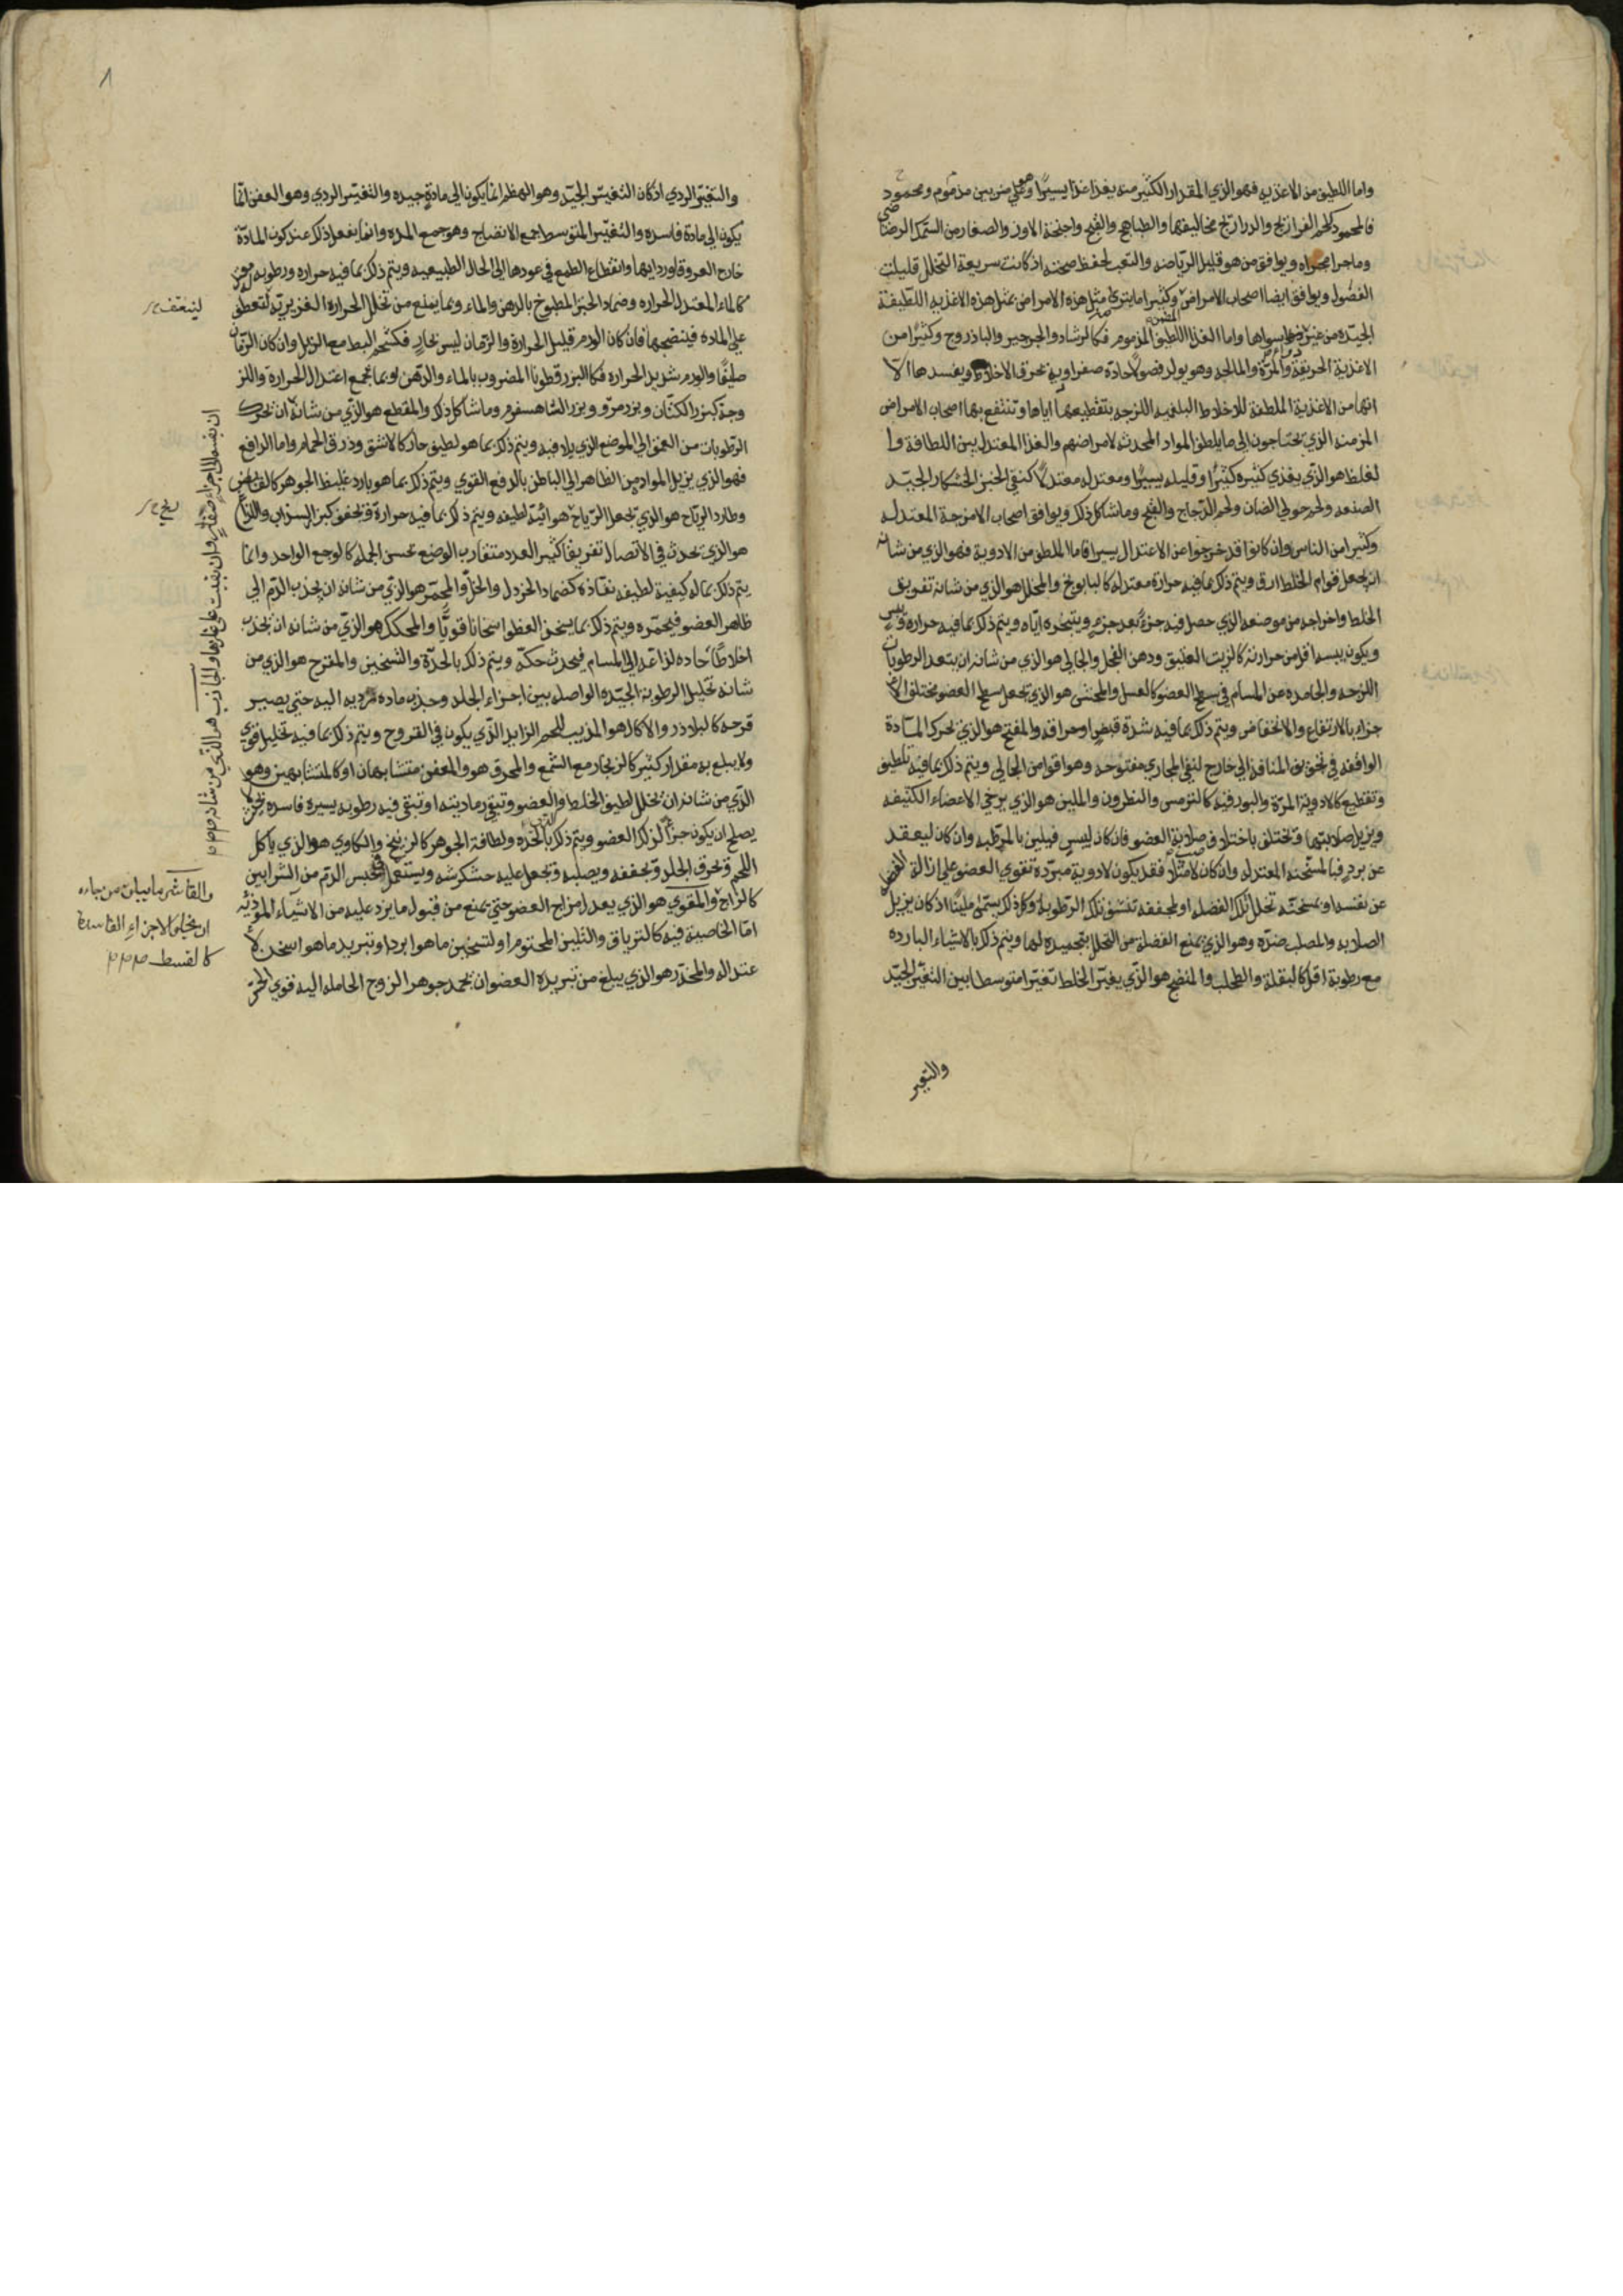 واما اللطيف من الاغذيه فهو الذي المقدار الكثير منه يغذا غذا يسيرا وهو علي ضربين مذموم ومحمود
فالمحمود كلحم الفراريج والدراريج مخاليفها والطباهج والقبج واجنحة الاوز والصغار من السمك الرضراضي
وما جرا مجراه ويوافق من هو قليل الرياضه والتعب لحفظ صحته اذ كانت سريعة التحلل قليلت
الفضول ويوافق ايضا اصحاب الامراض وكثيرا ما يتري مثل هذه الامراض بمثل هذه الاغذيه اللطيفة
الجيده من غير سواها واما الغذا اللطيف المذموم فكالرشاد والجرجير والباذروج وكثيرا من
الاغذية الحريفة والمرة والمالحه وهو يولد فضولا حادة صفراويه تحرق الاخلاط ويفسدها الا
انها من الاغذية الملطفة للاخلاط البلغميه اللزجه بتقطيعها اياها وتنتفع بها اصحاب الامراض
المزمنه الذي يحتاجون الى ما يلطف المواد المحدثه لامراضهم والغذا المعتدل بين اللطافة وا
لغلظ هو الذي يغذي كثيره كثيرا وقليله يسيرا ومعتدله معتدلا كنقي الخبز الخشكار الجيد
الصنعه ولحم حولي الضان ولحم الدجاج والقبج وما شاكل ذلك ويوافق اصحاب الامزجة المعتدله
وكثيرا من الناس وان كانوا قد خرجوا عن الاعتدال يسيرا فاما الملطف من الادوية فهو الذي من شانه
ان يجعل قوام الخلط ارق ويتم ذلك بما فيه حرارة معتدله كالبابونج والمحلل هو الذي من شانه تفريق
الخلط واخراجه من موضعه الذي حصل فيه جزء بعد جزء وبتبخره اياه ويتم ذلك بما فيه حراره
ويكون يبسه اقل من حرارته كالزيت العتيق ودهن الفجل والجالي هو الذي من شانه ان يبعد الرطوبات
اللزجه والجامده من المسام في سطح العضو كالعسل والمخشن هو الذي يجعل سطح العضو مختلف الا
جزاء بالارتفاع والانخفاض ويتم ذلك بما فيه شدة قبض او حرافة والمفتح هو الذي يحرك المادة
الواقفه في تجويف المنافذ الي خارج لتبقي المجاري مفتوحه وهو اقوا من الجالي ويتم ذلك بما فيه تلطيف
وتقطيع كالادوية المرة والبورقيه كالترمس والنطرون والملين هو الذي يرخي الاعضاء الكثيفه
ويزيل صلابتها وتختلف باختلاف صلابة العضو فان كان ليبس فيلين بالمرطبه وان كان ليعقد
عن برد فبالمسخنه المعتدله وان كان لامتلاء فقد يكون لادوية مبردة تقوي العضو علي ازالة
عن نفسه او بمسخنه تحلل تلك الفضله او بمجففه تنشف تلك الرطوبه وكل ذلك يسمى ملينا اذ كان يزيل
الصلابه والمصلب ضده وهو الذي يمنع الفضلة من التحلل بتجميده لها ويتم ذلك بالاشياء البارده
مع رطوبة اقل كالبقلة والطحلب والمنضج هو الذي يغير الخلط تغيرا متوسطا بين التغير الجيد
والتغير
والتغير الردي اذ كان التغير الجيد وهو الهظم انما يكون الي مادة جيده والتغير الردي وهو العفن انما
يكون الي مادة فاسده والتغير المتوسط بجمع الانضاج وهو جمع المده وانما يفعل ذلك عند كون المادة
خارج العروق وانقطاع الطمع في عودها الي الحال الطبيعيه ويتم ذلك بما فيه حراره ورطوبه
كالماء المعتدل الحراره وضماد الخبز المطبوخ بالدهن والماء وبما يمنع من تحلل الحرارة الغريزية لتعطف
علي الماده فينضجها فان كان الورم قليل الحرارة والزمان ليس بحار فكشحم البط مع الزبل وان كان الزمان
صيفا والورم شديد الحراره فكالبزر قطونا المضروب بالماء والدهن او بما يجمع اعتدال الحرارة واللز
وجة كبزر الكتان وبزر مرو وبزر الشاهسفرم وما شاكل ذلك والمقطع هو الذي من شانه ان يحرك
الرطوبات من العمق الي الموضع الذي يلاقيه ويتم ذلك بما هو لطيف حار كالاشق وذرق الحمام واما الرافع
فهو الذي يزيل المواد من الظاهر الي الباطن بالدفع القوي ويتم ذلك بما هو بارد غليظ الجوهر كالقابض
وطارد الرياح هو الذي يجعل الرياح هوائية لطيفه ويتم ذلك بما فيه حرارة وتجفيف كبزر السذاب واللذاع
هو الذي يحدث في الاتصال تفريقا كثير العدد متقارب الوضع يحس الجمله كالوجع الواحد وانما
يتم ذلك بماله كيفية لطيفه نفاذة كضماد الخردل والخل والمحمر هو الذي من شانه ان يجذب الدم الي
ظاهر العضو فيحمره ويتم ذلك بما يسخن العظوا سخانا قويا والمحكك هو الذي من شانه ان يجذب
اخلاطا حاده لذاعة الي المسام فيحدث حكه ويتم ذلك بالحدة والتسخين والمقرح هو الذي من
شانه تحليل الرطوبة الجيده الواصله بين اجزاء الجلد وجذب ماده رديه اليه حتي يصير
قرحه كالبلاذر والاكال هو المذيب للحم الزايد الذي يكون في القروح ويتم ذلك بما فيه تحليل قوي
ولا يبلغ به مقدار كثير كالزنجار مع الشمع والمحرق هو والمعفن متشابهان او كالمتشابهين وهو
الذي من شانه ان يحلل لطيف الخلط والعضو وتبقي رماديته او تبقي فيه رطوبه يسيره فاسده
يصلح ان يكون جزأ لذلك العضو ويتم ذلك بالحده ولطافة الجوهر كالزرنيخ والكاوي هو الذي ياكل
اللحم ويحرق الجلد ويجففه ويصلبه ويجعل عليه خشكريشه ويستعمل في حبس الدم من الشرايين
كالزاج والمقوي هو الذي يعدل مزاج العضو حتي يمنع من قبول ما يرد عليه من الاشياء الموذيه
اما الخاصية فيه كالترياق والطين المختوم او لتسخين ما هو ابرد او تبريد ما هو اسخن لا
عتداله والمخدر هو الذي يبلغ من تبريده العضو ان يجمد جوهر الروح الحامله اليه قوي الحس
والقاشر ما بيان من جلاءه
ان يجلو الاجزاء الفاسدة
كالقسط